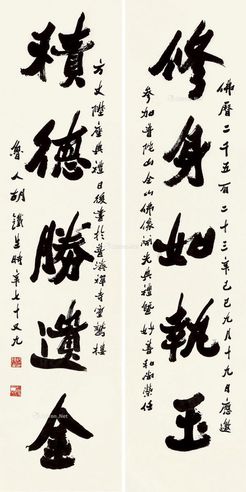 修身如執玉
積德勝遺金
佛曆二千五百二十三年己巳九月十九日應邀
參加普陀山全山佛像開光典禮暨妙善和尚榮任
方丈陞座典禮日後書於普濟禪寺靈鷲樓
魯人胡鐵生時年七十又九